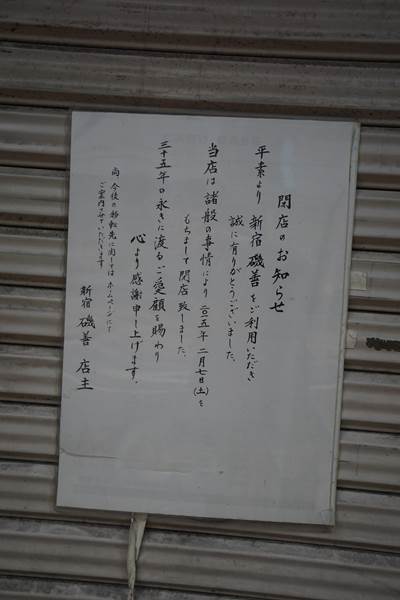 閉店のお知らせ
平素より 新宿 磯善をご利用いただき
誠に有りがとうございました。
当店は 諸般の事情により 二〇一五年 二月七日(土)を
もちまして 閉店致しました。
三十五年の永きに渡るご愛顧を賜わり
心より感謝申し上げます。
尚 今後の移転先に関しては ホームページにて
ご案内させていただきます。
新宿 磯善 店主